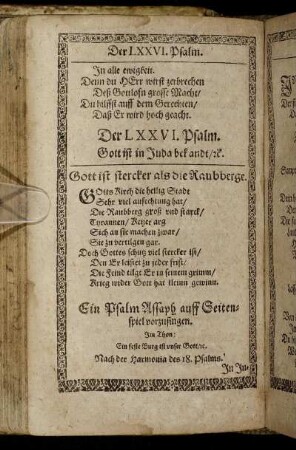 Der LXXVI. Psalm.
In alle ewigkeit.
Denn du HErr wirst zerbrechen
Deß Gottlosn grosse Macht/
Du hilffst auff dem Gerechten/
Daß Er wird hoch geacht.
Der LXXVI. Psalm.
Gott ist in Juda bekandt/ꝛc.
Gott ist stercker als die Raubberge.
GOtts Kirch die heilig Stadt
Sehr viel anfechtung hat/
Die Raubberg groß vnd starck/
Tyrannen/ Ketzer arg
Sich an sie machen zwar/
Sie zu vertilgen gar.
Doch Gottes schutz viel stercker ist/
Den Er leistet zu jeder frist/
Die Feind tilgt Er in seinem grimm/
Krieg wider Gott hat keinn gewinn.
Ein Psalm Assaph auff Seiten-
spiel vorzusingen.
Im Thon:
Ein feste Burg ist vnser Gott/ꝛc.
Nach der Harmonia des 18. Psalms.
In Ju-